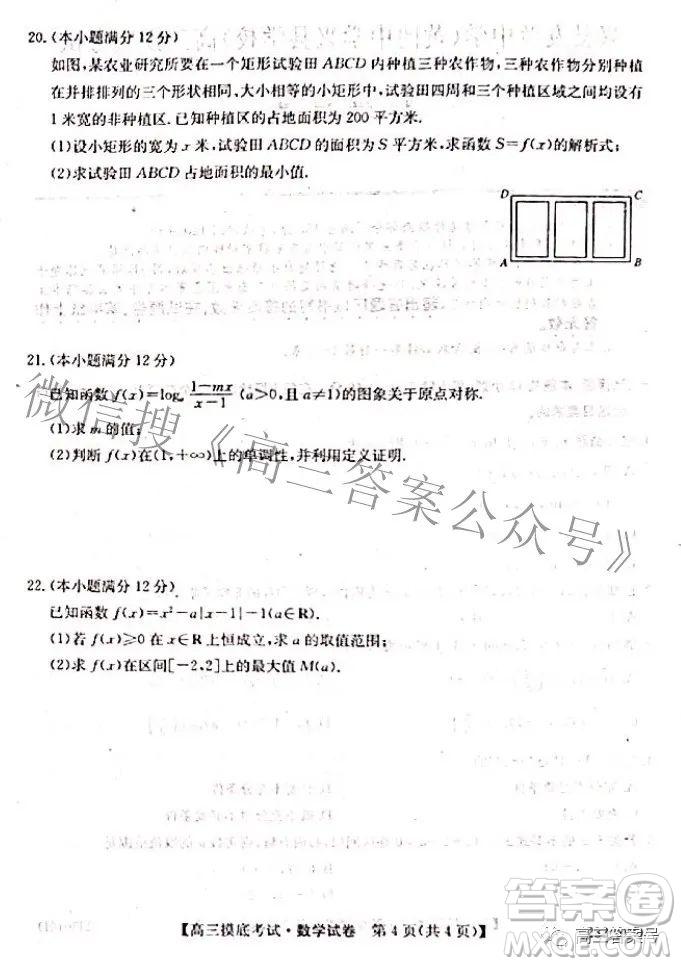 20.(本小题满分12分)
如图,某农业研究所要在一个矩形试验田ABCD内种植三种农作物,三种农作物分别种植
在并排排列的三个形状相同、大小相等的小矩形中.试验田四周和三个种植区域之间均设有
1米宽的非种植区.已知种植区的占地面积为200平方米.
(1)设小矩形的宽为x米,试验田ABCD的面积为S平方米,求函数S=f(x)的解析式;
(2)求试验田ABCD占地面积的最小值.
D C
A B
21.(本小题满分12分)
已知函数f(x)=logₐ (1-mx)/(x-1) (a>0,且a≠1)的图象关于原点对称.
(1)求m的值;
(2)判断f(x)在(1,+∞)上的单调性,并利用定义证明.
22.(本小题满分12分)
已知函数f(x)=x²-a|x-1|-1(a∈R).
(1)若f(x)≥0在x∈R上恒成立,求a的取值范围;
(2)求f(x)在区间[-2,2]上的最大值M(a).
微信搜《高三答案公众号》
【高三摸底考试·数学试卷 第4页(共4页)】
答案圈